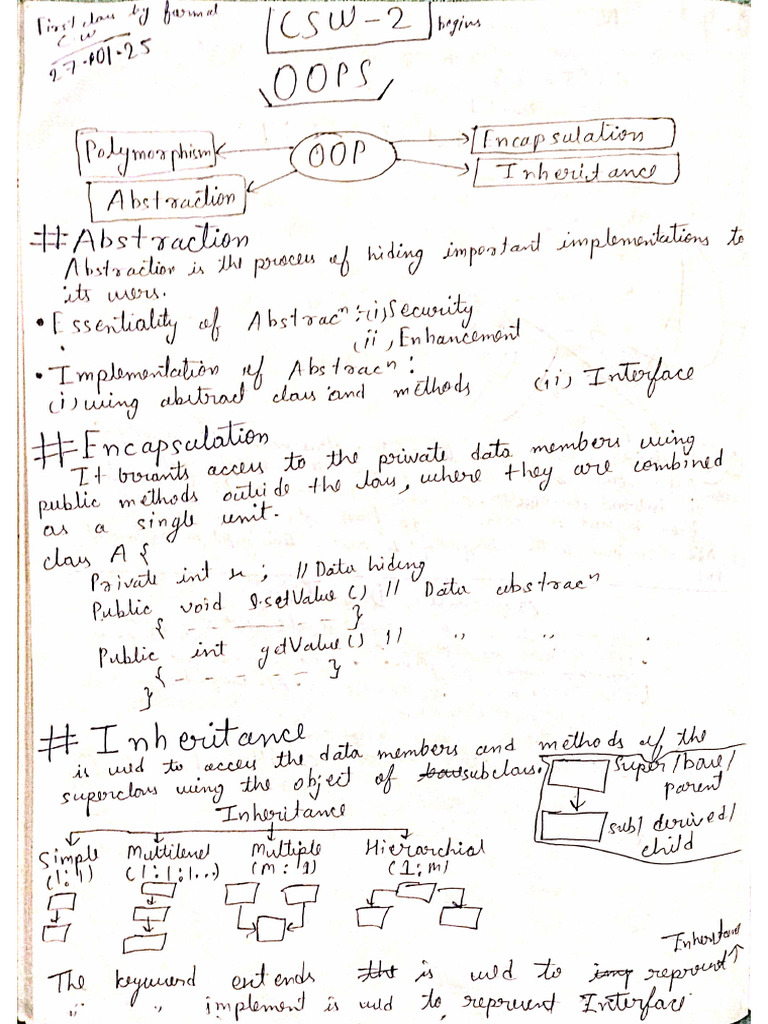 First class by formal
CW
27-01-25
CSW-2 begins
OOPS
Polymorphism
OOP
Encapsulation
Abstraction
Inheritance
# Abstraction
Abstraction is the process of hiding important implementations to
its users.
• Essentiality of Abstracⁿ :- (i) Security
(ii) Enhancement
• Implementation of Abstracⁿ :
(i) using abstract class and methods (ii) Interface
# Encapsulation
It grants access to the private data members using
public methods outside the class, where they are combined
as a single unit.
class A {
Private int x ; // Data hiding
Public void setValue () // Data abstracⁿ
{ - - - - - - }
Public int getValue () // " "
{ - - - - - }
}
# Inheritance
is used to access the data members and methods of the
superclass using the object of subclass.
super/base/
parent
sub/ derived/
child
Inheritance
Simple
(1:1)
Multilevel
(1:1:1...)
Multiple
(m:1)
Hierarchial
(1:m)
The keyword extends is used to represent Inheritan
" " implement is used to represent Interface